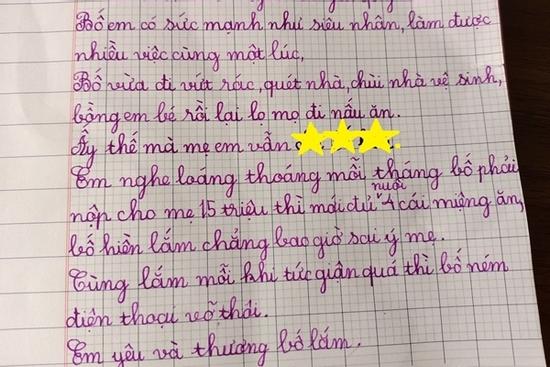 Bố em có sức mạnh như siêu nhân, làm được
nhiều việc cùng một lúc,
Bố vừa đi vứt rác, quét nhà, chùi nhà vệ sinh,
bồng em bé rồi lại lọ mọ đi nấu ăn.
Ấy thế mà mẹ em vẫn
Em nghe loáng thoáng mỗi tháng bố phải
nuôi
nộp cho mẹ 15 triệu thì mới đủ 4 cái miệng ăn,
bố hiền lắm chẳng bao giờ sai ý mẹ.
Cùng lắm mỗi khi tức giận quá thì bố ném
điện thoại vỡ thôi.
Em yêu và thương bố lắm.